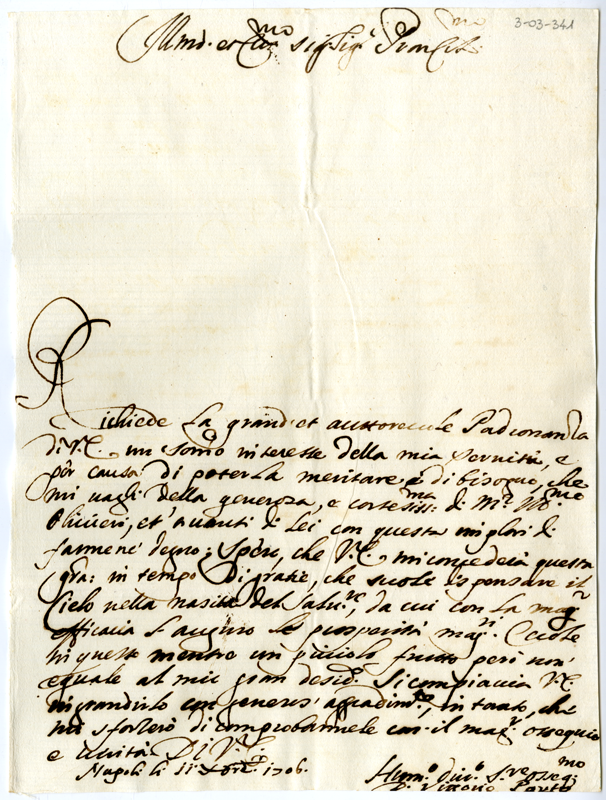 3-03-341
et Sig.r Sig.r
Richiede La grand et auttoreuole Padronanza
di V.E. un somo interesse della mia seruitù, e
per causa di poterLa meritare è di bisogno, che
mi uagli della generosa, e cortesiss:ma di M.r
Oliuieri, et auanti di Lei con questa migliori di
farmene degno; Spero, che V.E. mi concederà questa
gra: in tempo Di gratie, che suole dispensare il
Cielo nella nascita del Salu.re, da cui con La mag.r
efficacia L'auguro le prosperità mag.ri. Eccole
in questo mentre un picciolo frutto però non
equale al mio gran desid.o Si compiaccia V.E.
ingrandirlo con generoso, in tanto, che
mi sforzerò di comprobarmele con il mag.r ossequio
e Umiltà Di V.E.
Napoli li 11 Xbre 1706.
Hum.o diu.o
D. Vittorio